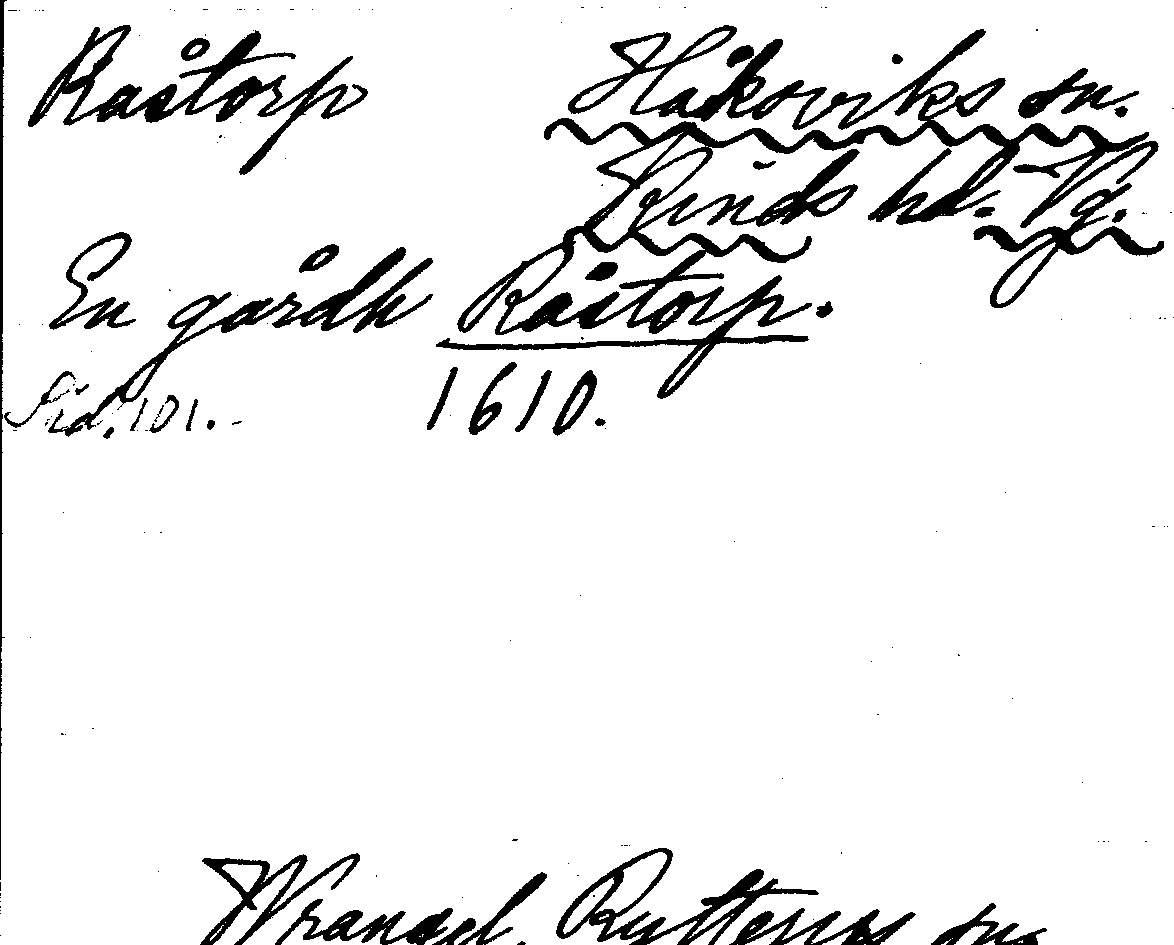 Råstorp Håksviks sn.
Kinds hd. Vg.
En gårdh Råstorp.
101. 1610.
Wrangel, Rytterns sn